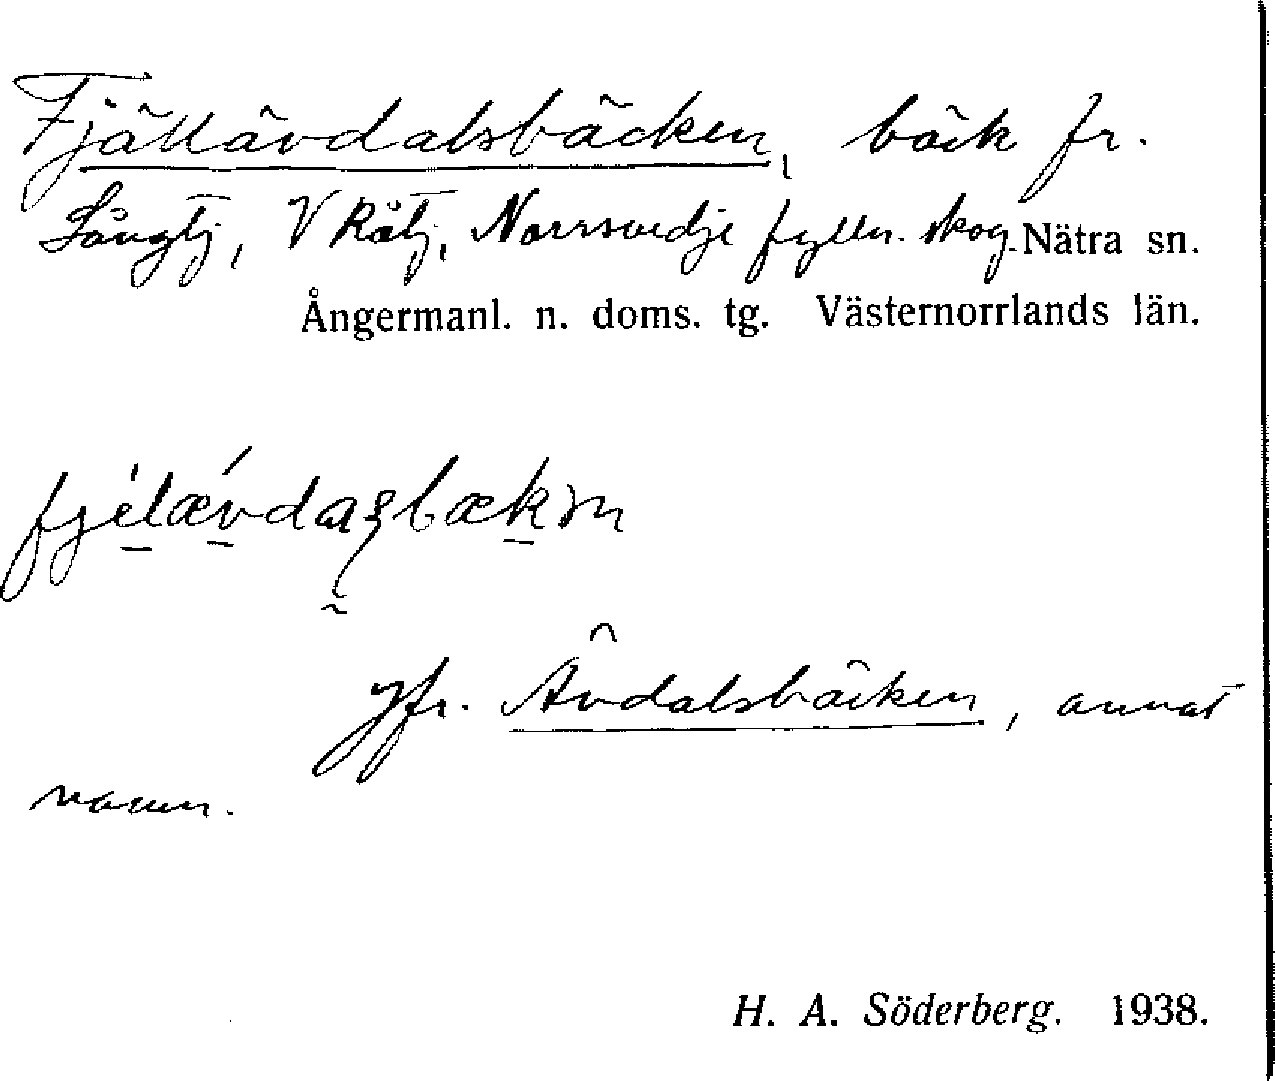 Fjällävdalsbäcken, bäck fr.
Långtj, V Råtj, Norrsvedje fylln. skog. Nätra sn.
Ångermanl. n. doms. tg. Västernorrlands län.
Jfr. Ävdalsbäcken, annat
namn.
H. A. Söderberg. 1938.